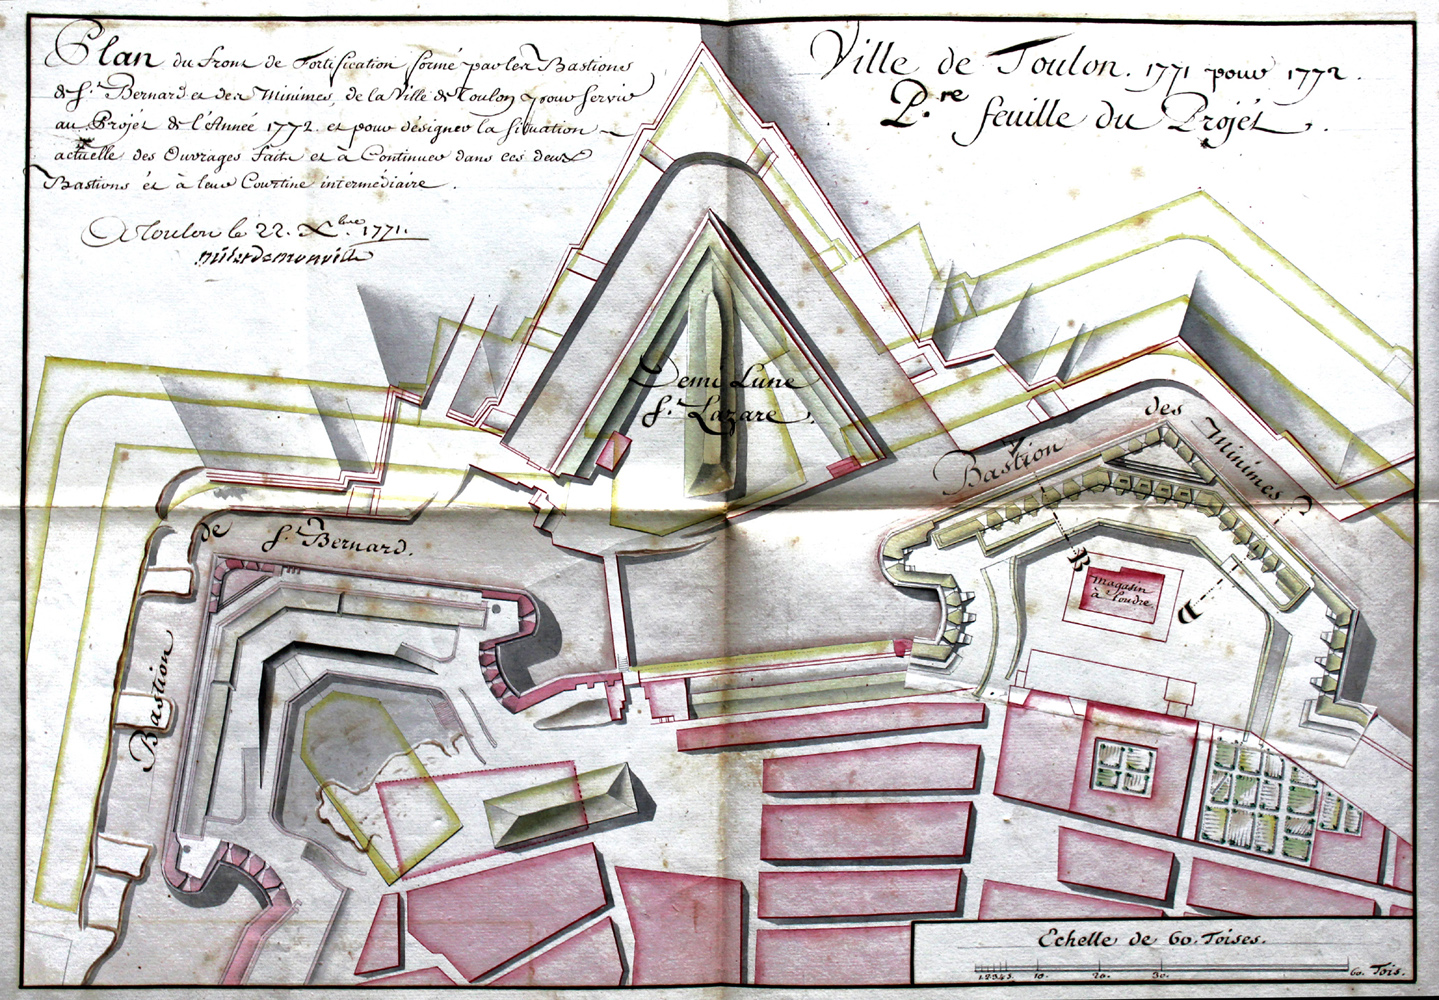 Plan du front de Fortification formé par les Bastions
de St. Bernard et des Minimes, de la Ville de Toulon pour servir
au Projét de l'Année 1772. et pour désigner la Situation
actuelle des Ouvrages faits et à Continuer dans ces deux
Bastions ét à leur Courtine intermédiaire.
A Toulon le 22. Xbre 1771.
Ville de Toulon. 1771 pour 1772.
P.re feuille du Projét.
Demi Lune
St. Lazare.
Bastion des Minimes
Bastion de St. Bernard.
A
B
C
D
Magasin
à Poudre
Echelle de 60. Toises.
1.2.3.4.5. 10. 20. 30. 60. Tois.